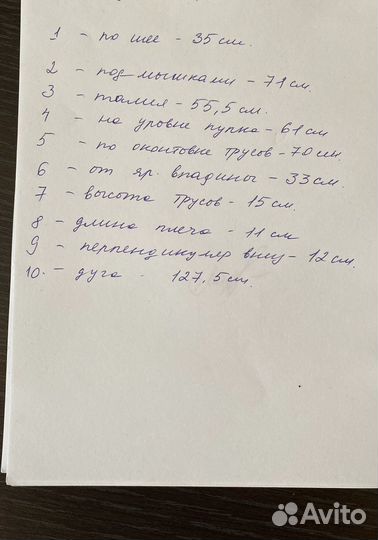 1 - по шее - 35 см.
2 - под мышками - 71 см.
3 - талия - 55,5 см.
4 - на уровне пупка - 61 см
5 - по окантовке трусов - 70 см.
6 - от яр. впадины - 33 см.
7 - высота трусов - 15 см.
8 - длина плеча - 11 см
9 - перпендикуляр вниз - 12 см.
10. - дуга - 127,5 см.
Avito